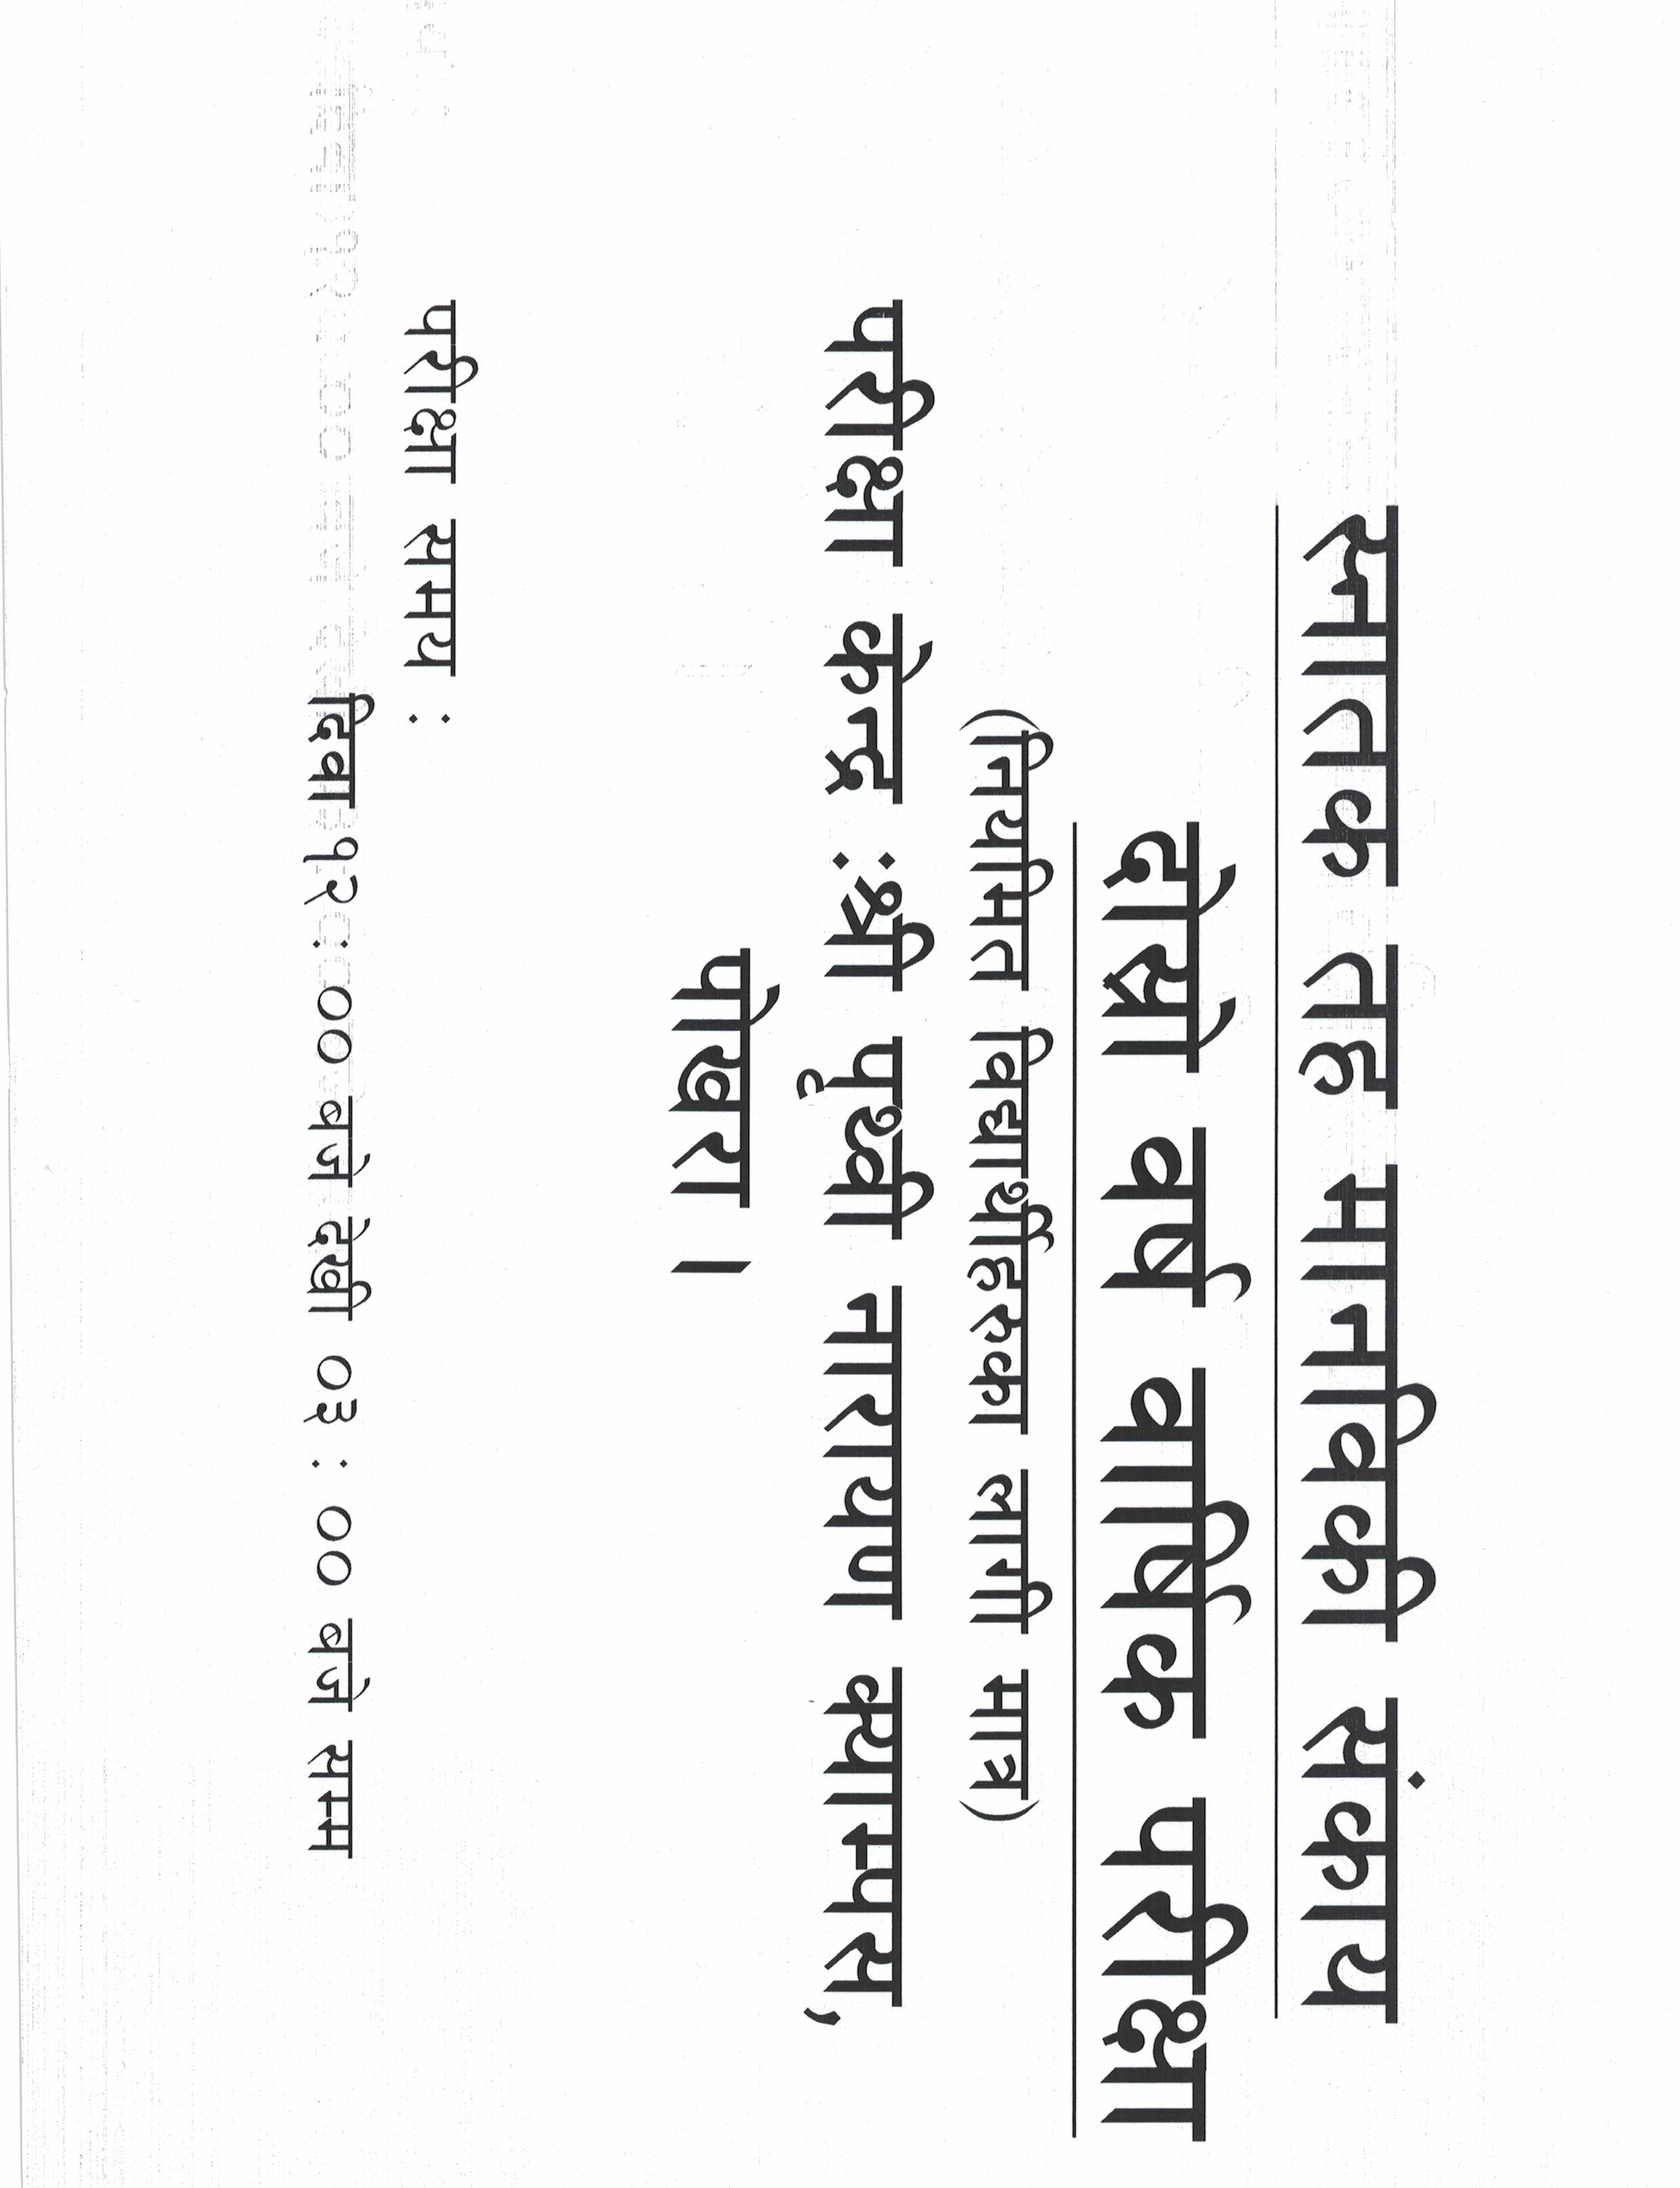 स्नातक तह मानविकी संकाय
दोस्रो वर्ष वार्षिक परीक्षा
(नियमित विद्यार्थीहरुका लागी मात्र)
परीक्षा केन्द्र :श्री पृथ्वी नारायण क्याम्पस,
पोखरा ।
परीक्षा समय :
दिवा १२ : ०० बजे देखी ०३ : ०० बजे सम्म